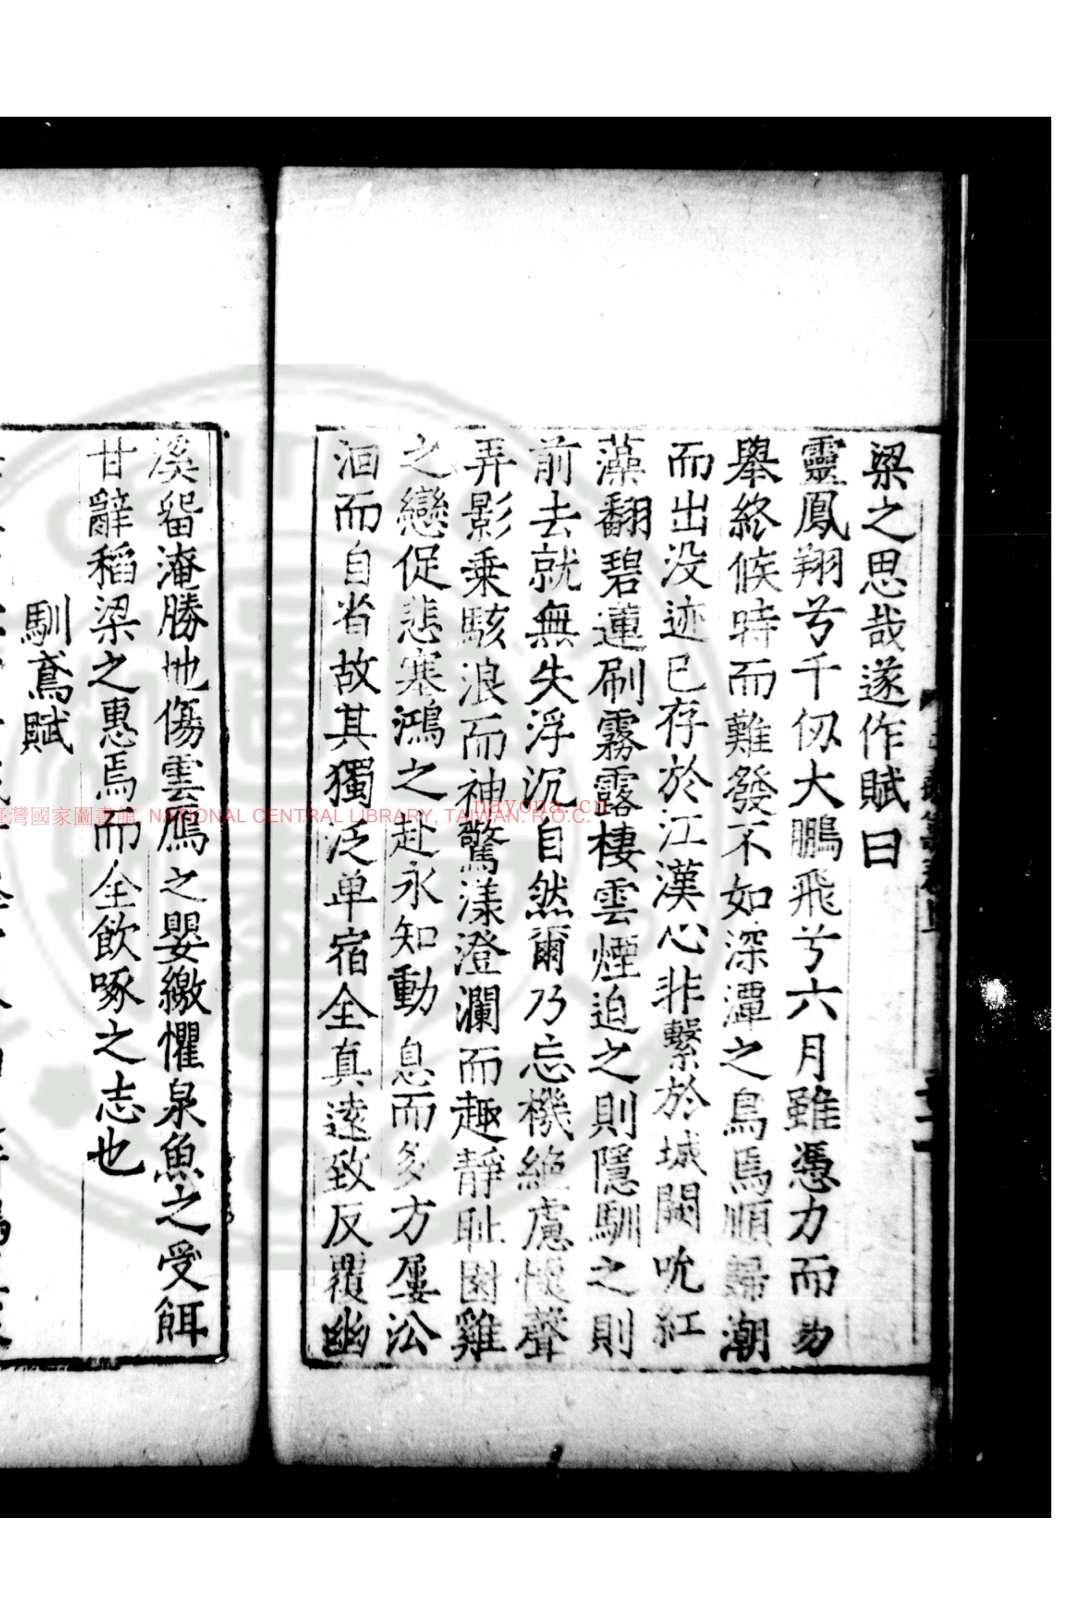 梁之思哉遂作賦曰
靈鳳翔兮千仭大鵬飛兮六月雖憑力而易
舉終候時而難發不如深潭之鳥焉順歸潮
而出没迹已存於江漢心非繫於城闕吮紅
藻翻碧蓮刷霧露棲雲煙迫之則隱馴之則
前去就無失浮沉自然爾乃忘機絶慮懷聲
弄影乗駭浪而神驚漾澄瀾而趣靜耻園雞
之戀促悲塞鴻之赴永知動息而多方屢㳂
洄而自省故其獨泛单宿全真遠致反覆幽
溪畱淹勝地傷雲鴈之嬰繳懼泉魚之受餌
甘辭稻梁之惠焉而全飲啄之志也
馴鳶賦
臺灣國家圖書館 NATIONAL CENTRAL LIBRARY, TAIWAN. R.O.C.
nayona.cn